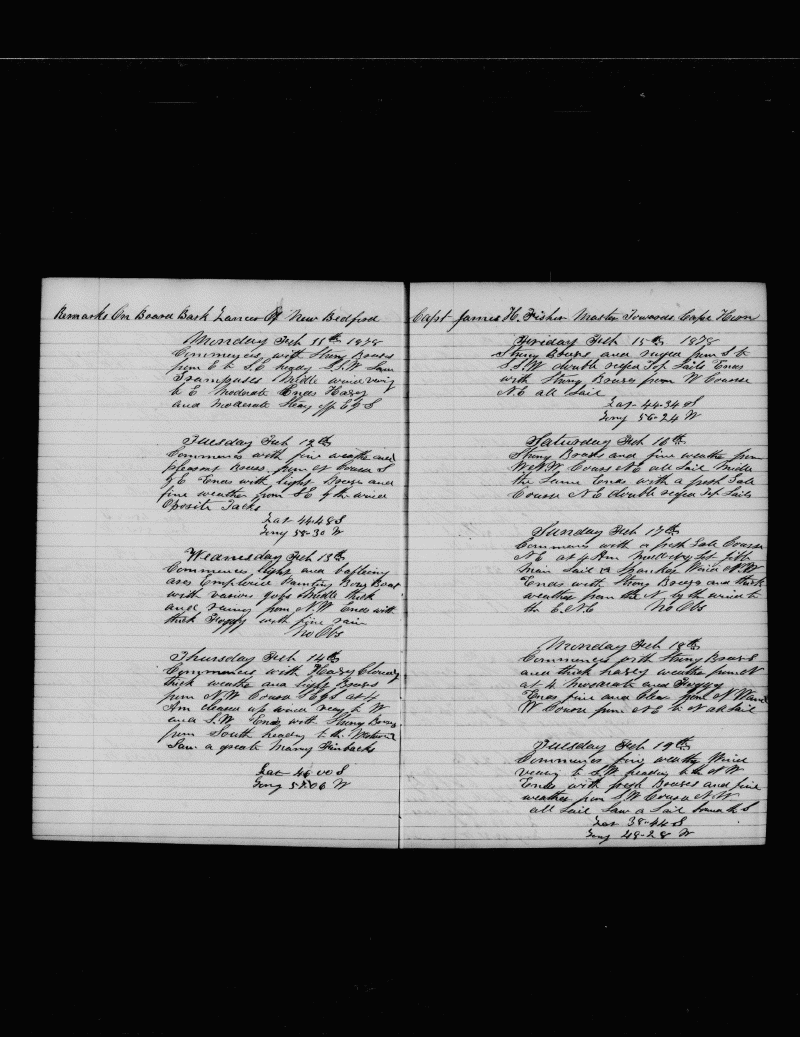 Remarks On Board Bark Lancer Of New Bedford
Munday Feb 11th 1878
Commences with Strong Breses
from E to S.E heady S.S.W Saw
Grampuses Middle wind vering
to E Moderate Ends Hazey
and moderate Stearing off E & S
Tuesday Feb 12th
Commences with fine weather and
pleasant Brees from N Course S
& E Ends with light Breses and
fine weather from S E by the wind
Oposite Tacks
Lat 44-48 S
Long 58-30 W
Wednesday Feb 13th
Commences light and baffling
airs Employed Painting Bow Boat
with varios gobs Middle thick
and rainy from N.W Ends with
thick Foggy with fine rain
No Obs
Thursday Feb 14th
Commences with Hazey Cloudy
thick weather and light Breses
from N.W Course E & S at 4
Am cleard up wind vering to W
and S.W Ends with Strong Breses
from South heading to the Westward
Saw a greate Manny Finbacks
Lat 46 00 S
Long 58.06 W
Capt James H. Fisher Master Towards Cape Horn
Friday Feb 15th 1878
Strong Breses and ruged from S to
S.S.W double reefed Top Sails Ends
with Strong Breses from W Course
N.E all Sail
Lat 44-34 S
Long 56-24 W
Saturday Feb 16th
Strong Breses and fine weather from
W.N.W Course N E all Sail Middle
the Same Ends with a fresh Gale
Course N E double reefed Top Sails
Sunday Feb 17th
Commences with a fresh Gale Course
N.E at 4 Am Jibb
Main Sail & Spanker Wind N.W
Ends with Strong Breses and thick
weather from the N by the wind to
the E.N.E No Obs
Munday Feb 18th
Commences with Strong Breses
and thick hazey weather from N
at 4 Moderate and Foggey
Ends fine and Clear from N Wind
W Course from N E to N all Sail
Tuesday Feb 19th
Commences fine weather Wind
vering to S.W heading to the N W
Ends with fresh Breses and fine
weather from S.W Course N.W
all Sail Saw a Sail bound to S
Lat 38-44 S
Long 48-28 W